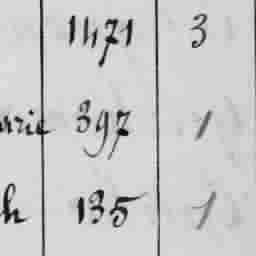 1471 3
arie 397 1
h 135 1